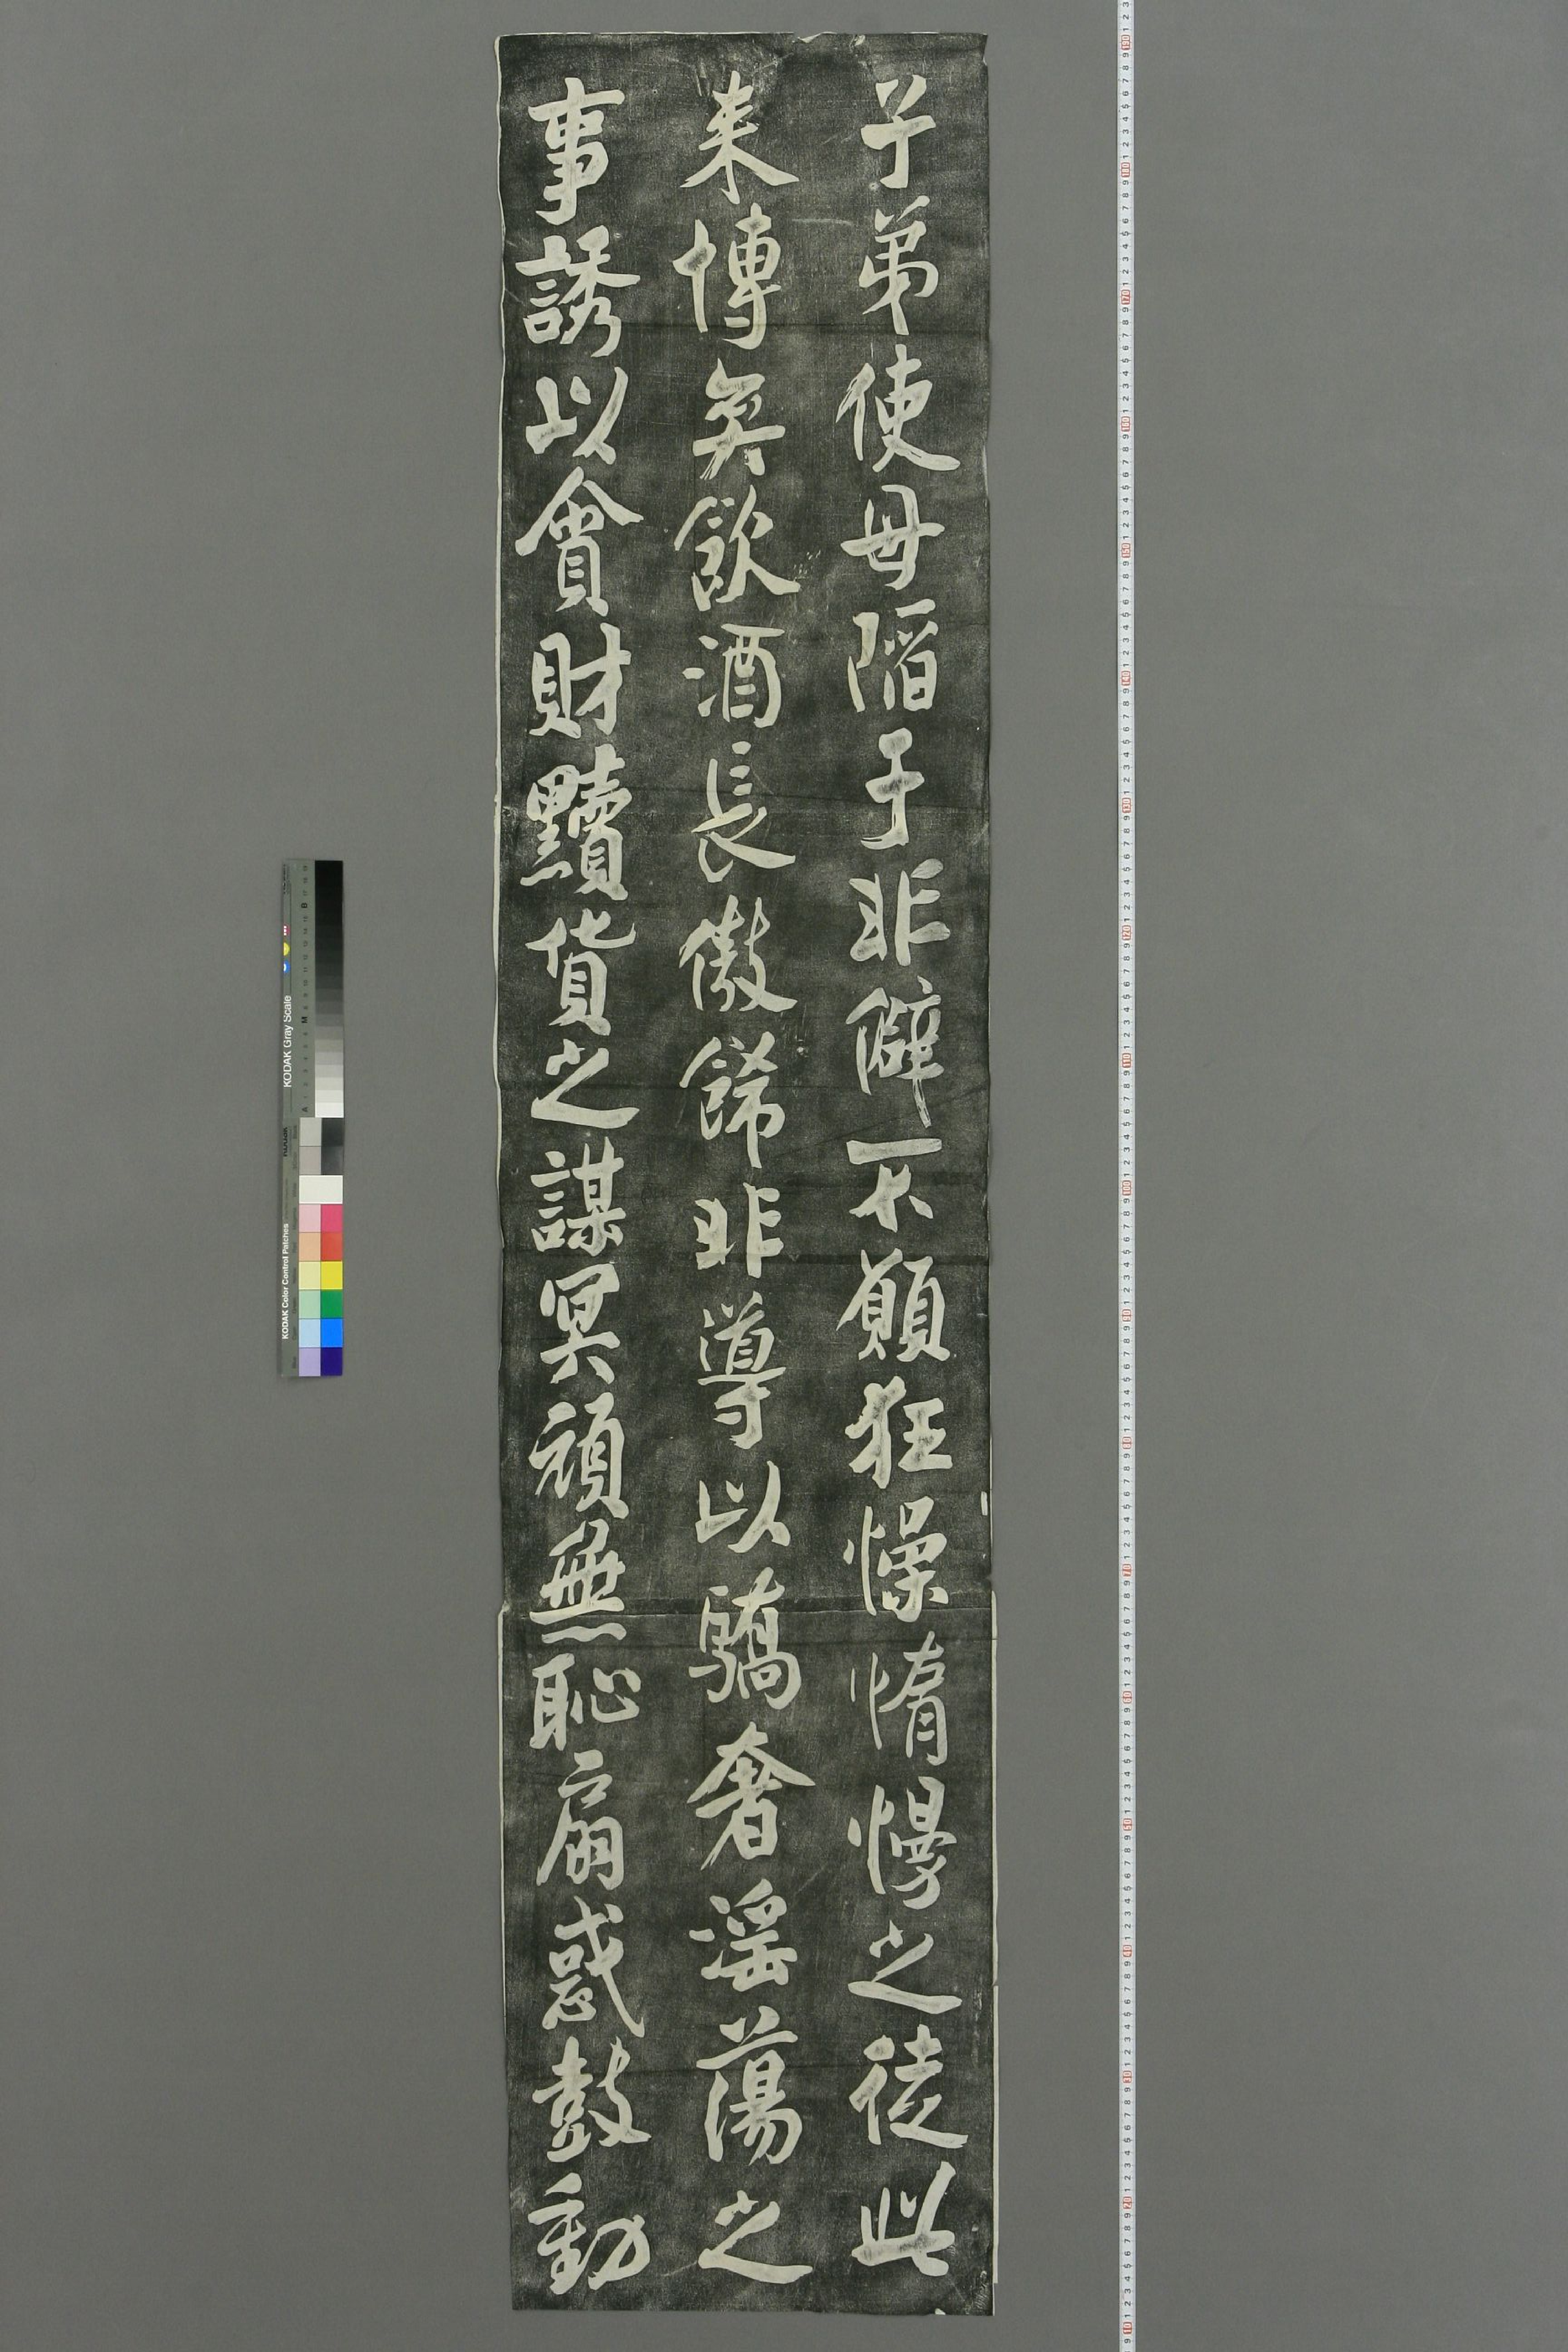 子弟使毋陷于非僻不願狂懆惰慢之徒此
来博奕飲酒長傲飾非導以驕奢淫蕩之
事誘以貪財黷貨之謀冥頑無恥扇惑鼓動
KODAK Gray Scale
KODAK Color Control Patches